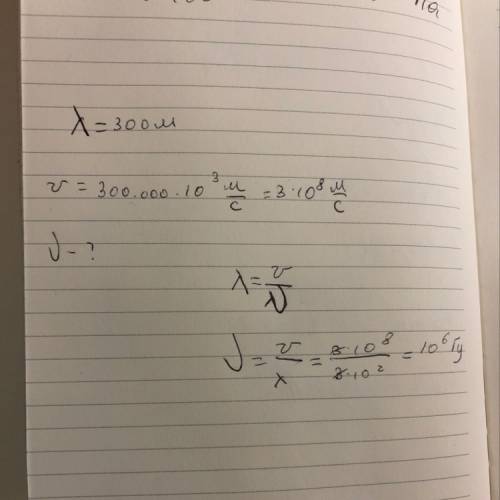 λ = 300 м
v = 300.000 · 10³ м/с = 3 · 10⁸ м/с
ν - ?
λ = v/ν
ν = v/λ = 3·10⁸/3·10² = 10⁶ Гц